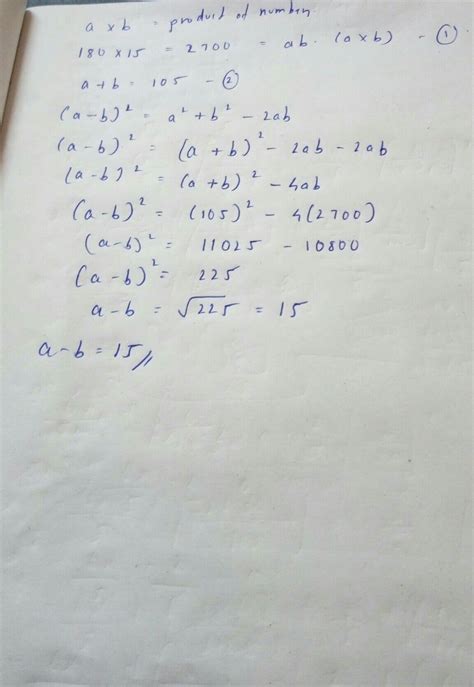 a × b = product of number.
180 × 15 = 2700 = ab. (a × b) - ①
a + b = 105 - ②
(a - b)² = a² + b² - 2ab
(a - b)² = (a + b)² - 2ab - 2ab
(a - b)² = (a + b)² - 4ab
(a - b)² = (105)² - 4(2700)
(a - b)² = 11025 - 10800
(a - b)² = 225
a - b = √225 = 15
a - b = 15//